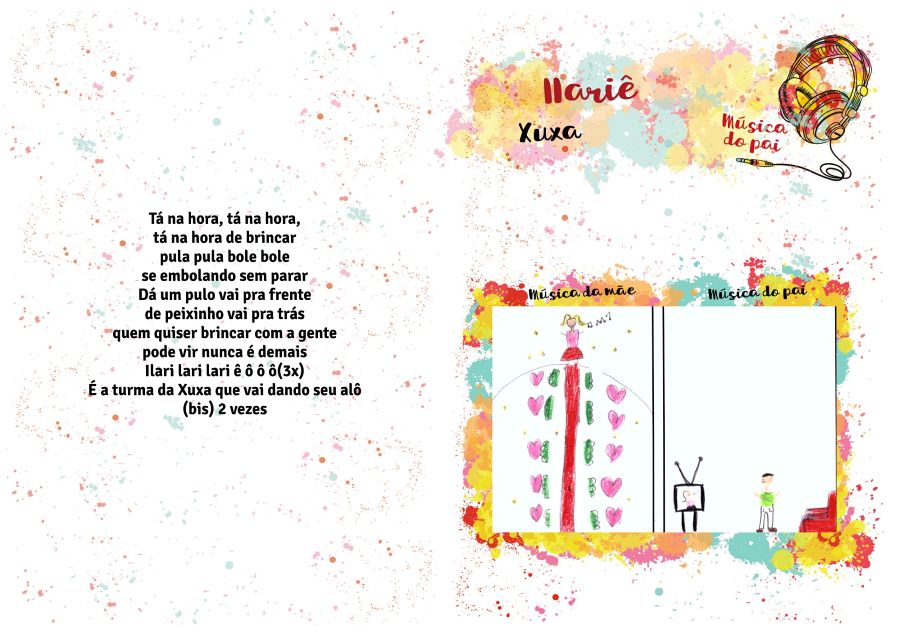 Tá na hora, tá na hora,
tá na hora de brincar
pula pula bole bole
se embolando sem parar
Dá um pulo vai pra frente
de peixinho vai pra trás
quem quiser brincar com a gente
pode vir nunca é demais
Ilari lari lari ê ô ô ô(3x)
É a turma da Xuxa que vai dando seu alô
(bis) 2 vezes
Ilariê
Xuxa
Música
do pai
Música da mãe
Música do pai